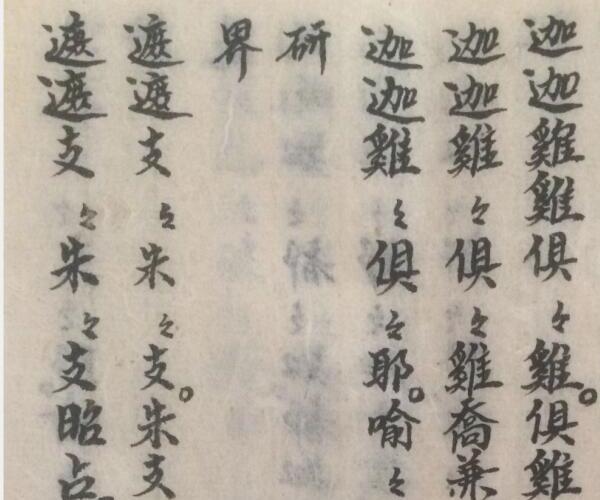 迦迦雞雞俱々雞。俱雞
迦迦雞々俱々雞喬兼
迦迦雞々俱々耶。喻々
研
界
遮遮支々朱々支。朱支
遮遮支々朱々支昭占。